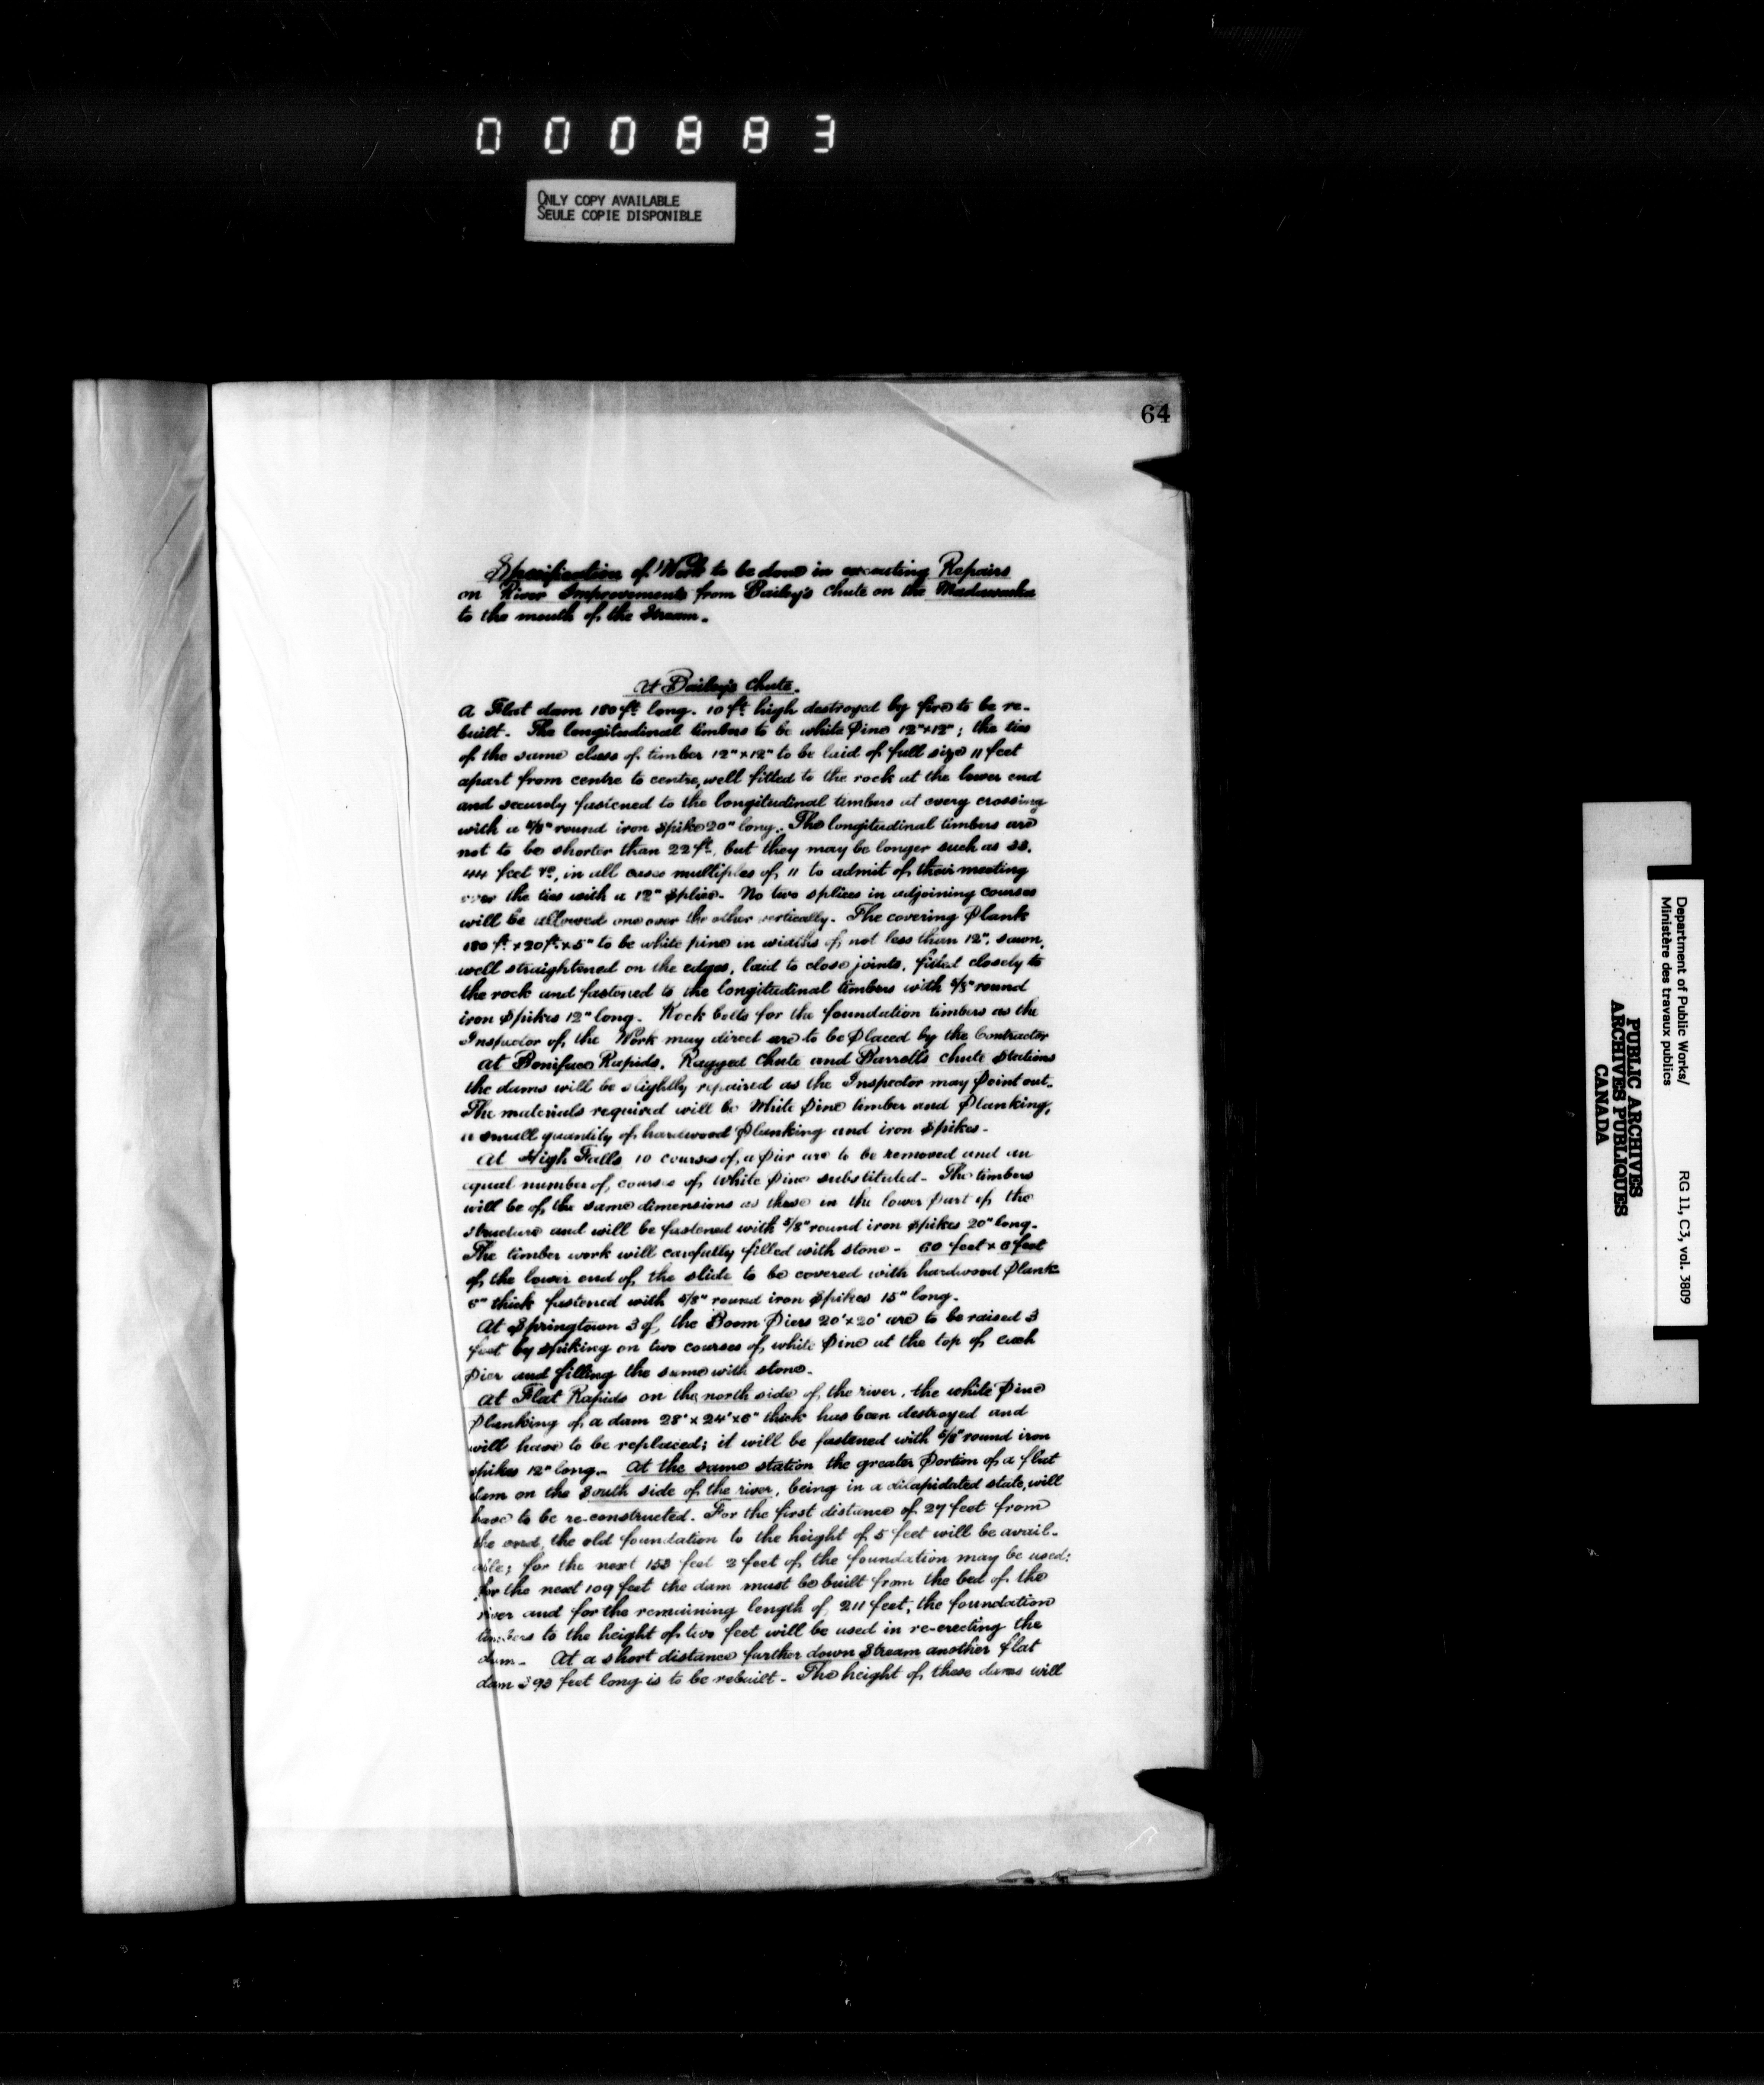 000883
ONLY COPY AVAILABLE
SEULE COPIE DISPONIBLE
64
Specification of Work to be done in executing Repairs
on River Improvements from Bailey's Chute on the Madawaska
to the mouth of the Stream.
At Bailey's Chute.
A Flat dam 180 ft. long. 10 ft. high destroyed by fire to be re-
built. The longitudinal timbers to be white Pine 12"x12"; the ties
of the same class of timber 12"x12" to be laid of full size 11 feet
apart from centre to centre, well fitted to the rock at the lower end
and securely fastened to the longitudinal timbers at every crossing
with a 5/8" round iron Spike 20" long. The longitudinal timbers are
not to be shorter than 22 ft. but they may be longer such as 33,
44 feet &c, in all cases multiples of 11 to admit of their meeting
over the ties with a 12" Splice. No two splices in adjoining courses
will be allowed one over the other vertically. The covering Plank
180 ft. x 20 ft. x 5" to be white pine in widths of not less than 12", sawn,
well straightened on the edges, laid to close joints, fitted closely to
the rock and fastened to the longitudinal timbers with 5/8" round
iron Spikes 12" long. Rock bolts for the foundation timbers as the
Inspector of the Work may direct are to be Placed by the Contractor
At Boniface Rapids, Ragged Chute and Barretts chute Stations
the dams will be slightly repaired as the Inspector may Point out.
The materials required will be White Pine timber and Planking,
a small quantity of hardwood Planking and iron Spikes.
At High Falls 10 courses of a Pier are to be removed and an
equal number of courses of White Pine substituted. The timbers
will be of the same dimensions as those in the lower Part of the
Structure and will be fastened with 5/8" round iron Spikes 20" long.
The timber work will carefully filled with stone. 60 feet x 6 feet
of the lower end of the slide to be covered with hardwood Plank
6" thick fastened with 5/8" round iron Spikes 15" long.
At Springtown 3 of the Boom Piers 20' x 20' are to be raised 3
feet by Spiking on two courses of white Pine at the top of each
Pier and filling the same with stone.
At Flat Rapids on the north side of the river, the white Pine
Planking of a dam 28' x 24' x 6" thick has been destroyed and
will have to be replaced; it will be fastened with 5/8" round iron
spikes 12" long. At the same station the greater Portion of a flat
dam on the South side of the river, being in a dilapidated state, will
have to be re-constructed. For the first distance of 27 feet from
the end, the old foundation to the height of 5 feet will be avail-
able; for the next 153 feet 2 feet of the foundation may be used;
for the next 109 feet the dam must be built from the bed of the
river and for the remaining length of 211 feet, the foundation
timbers to the height of two feet will be used in re-erecting the
dam. At a short distance further down Stream another flat
dam 393 feet long is to be rebuilt. The height of these dams will
Department of Public Works/
Ministère des travaux publics
RG 11, C3, vol. 3809
PUBLIC ARCHIVES
ARCHIVES PUBLIQUES
CANADA